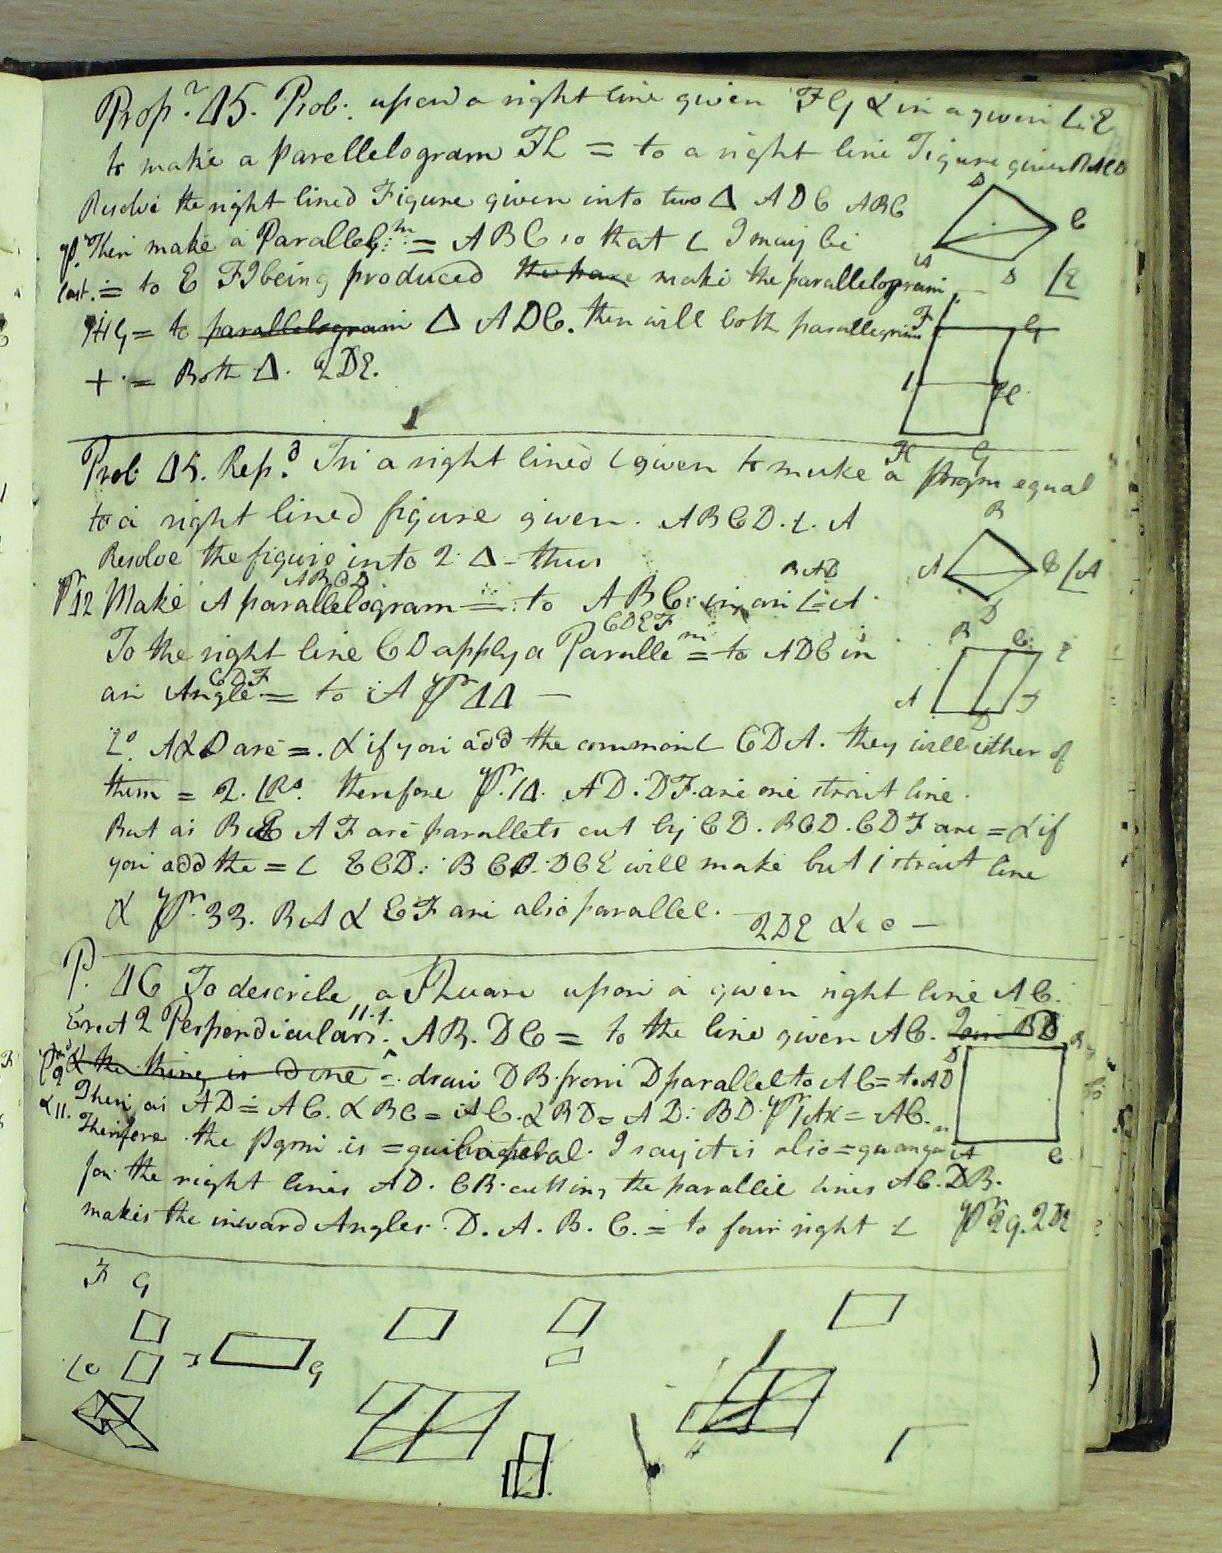 Prop.n 45. Prob. upon a right line given FG & in a given ∠ E
to make a parellelogram FL = to a right line Figure given BACD
Resolve the right lined Figure given into two Δ ADC ABC
Then make a Parallelg.m = ABC so that ∠ I may be
last. = to E FI being produced the para make the parallelogram
IHG = to parallelogram Δ ADC. then will both parallegrims
+ = Both Δ. QDE.
Prob 45. Rep.d In a right lined ∠ given to make a pgm equal
to a right lined figure given. ABCD. ∠. A
Resolve the figure into 2 Δ - thus
ABCD BAD
Pr 42 Make A parallelogram = to ABC in an ∠ = A.
CDEF
To the right line CD apply a Paralle m = to ADC in
CDF
an Angle = to A Pr 44 —
∠s A & D are = & if you add the common ∠ CDA. they will either of
them = 2. ∠Rs. therefore Pr. 14. AD. DF. are one strait line.
But as BE AF are parallels cut by CD. BCD. CDF are = & if
you add the = ∠ ECD: BCD. DCE will make but 1 strait line
& Pr. 33. BA & EF are also parallel. QDE &c —
P. 46 To describe a Square upon a given right line AC.
11.1.
Erect 2 Perpendiculars. AB. DC = to the line given AC. Join BD
& the thing is done draw DB from D parallel to AC = to AD
Then as AD = AC. & BC = AC. & BD = AD: BD. = AC.
& 11. Therefore the Pgm is = quilateral. I say it is also = quangu
for the right lines AD. CB. cutting the parallel lines AC. DB.
makes the inward Angles D. A. B. C. = to four right ∠ Pr 29. QDE
F G